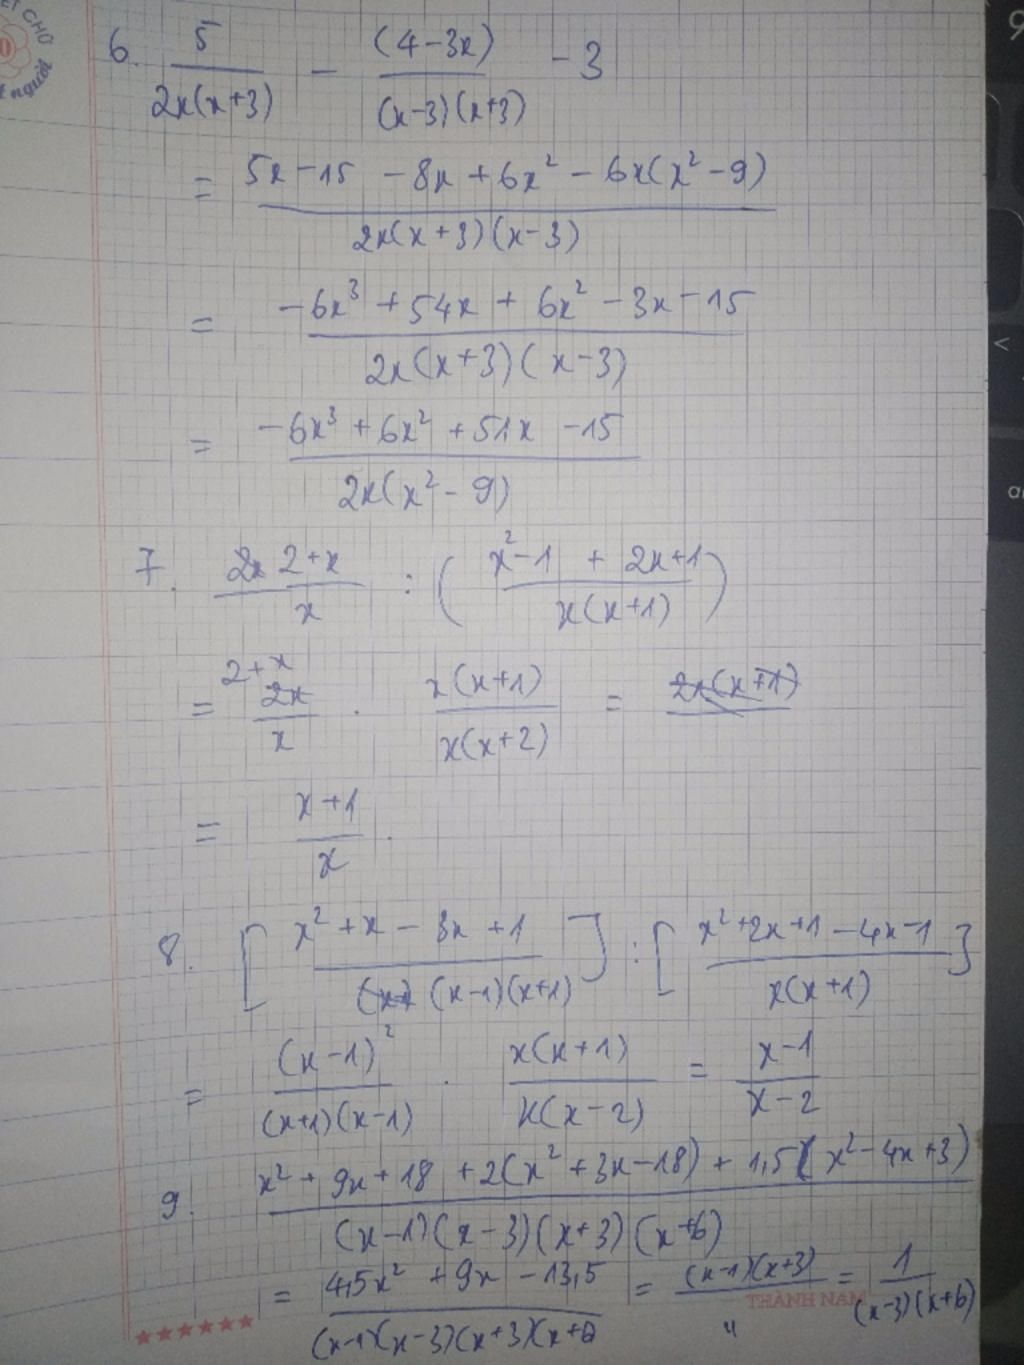 6. 5/(2x(x+3)) - (4-3x)/((x-3)(x+3)) - 3
= (5x-15 - 8x + 6x² - 6x(x²-9))/(2x(x+3)(x-3))
= (-6x³ + 54x + 6x² - 3x - 15)/(2x(x+3)(x-3))
= (-6x³ + 6x² + 51x - 15)/(2x(x²-9))
7. (2+x)/x : ((x²-1 + 2x+1)/(x(x+1)))
= (2+x)/x . (x(x+1))/(x(x+2)) = 2x(x+1)
= (x+1)/x .
8. [(x²+x-3x+1)/((x-1)(x+1))] : [(x²+2x+1-4x-1)/(x(x+1))]
= (x-1)²/((x+1)(x-1)) . (x(x+1))/(x(x-2)) = (x-1)/(x-2)
9. (x²+9x+18 + 2(x²+3x-18) + 1,5(x²-4x+3))/((x-1)(x-3)(x+3)(x+6))
= (4,5x² + 9x - 13,5)/((x-1)(x-3)(x+3)(x+6) = ((x-1)(x+3))/" = 1/((x-3)(x+6))
THÀNH NAM